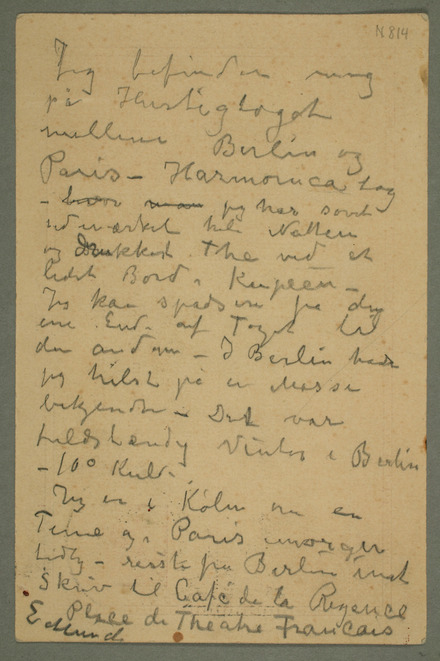 N 814
Jeg befinder mig
på Hurtigtoget
mellem Berlin og
Paris – Harmonica tog
– hvor man jeg har sovet
udmærket hele Natten
og drukket The ved et
lidet Bord i Kupeen –
Jeg kan spadsere fra den
ene End. af Toget til
den anden – I Berlin har
jeg hilst på en Masse
bekjendte – Det var
fuldstændig Vinter i Berlin
– 10° Kuld.
Jeg er i Köln om en
Time og i Paris imorgen
tidlg – reiste fra Berlin inat
Skriv til Café de la Regence
Place de Theatre Francais
E Munch